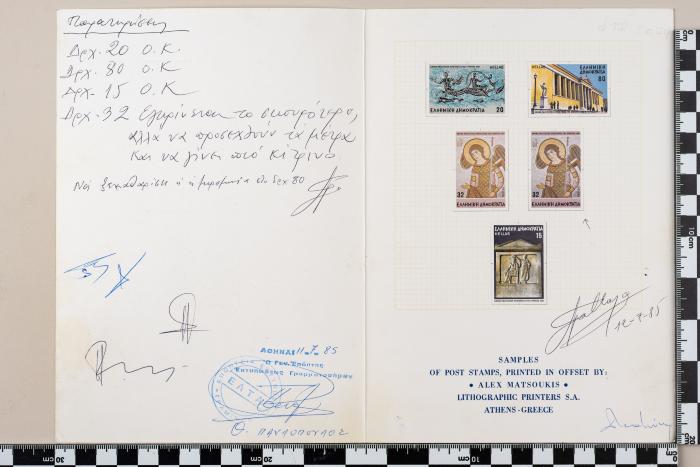 Παρατηρήσεις
Δρχ. 20 Ο.Κ.
Δρχ. 80 Ο.Κ
Δρχ. 15 Ο.Κ
Δρχ. 32 Εγκρίνεται το σκουρότερο,
αλλά να προσεχθούν τα μέτρα
και να γίνει πιό κίτρινο
Να ξεκαθαρίσει η ημερομηνία στο δρχ 80
ΑΘΗΝΑΙ 11-7-85
Ο Γεν. Επόπτης
Εκτυπώσεως Γραμματοσήμων
ΕΛΤΑ
Θ. ΠΑΥΛΟΠΟΥΛΟΣ
HELLAS
ΕΛΛΗΝΙΚΗ ΔΗΜΟΚΡΑΤΙΑ 20
HELLAS ΕΛΛΗΝΙΚΗ
ΔΗΜΟΚΡΑΤΙΑ
80
32
ΕΛΛΗΝΙΚΗ ΔΗΜΟΚΡΑΤΙΑ
32
ΕΛΛΗΝΙΚΗ ΔΗΜΟΚΡΑΤΙΑ
ΕΛΛΗΝΙΚΗ ΔΗΜΟΚΡΑΤΙΑ
HELLAS 15
12-7-85
SAMPLES
OF POST STAMPS, PRINTED IN OFFSET BY:
• ALEX MATSOUKIS •
LITHOGRAPHIC PRINTERS S.A.
ATHENS-GREECE
10 cm
30 cm
20
10